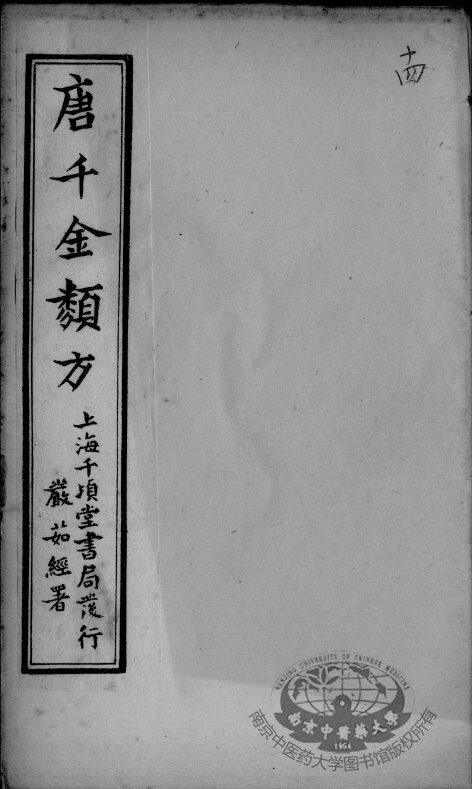 十四
唐千金類方
上海千頃堂書局發行
嚴茹經署
NANJING UNIVERSITY OF CHINESE MEDICINE
南京中醫藥大學
1954
南京中医药大学图书馆版权所有